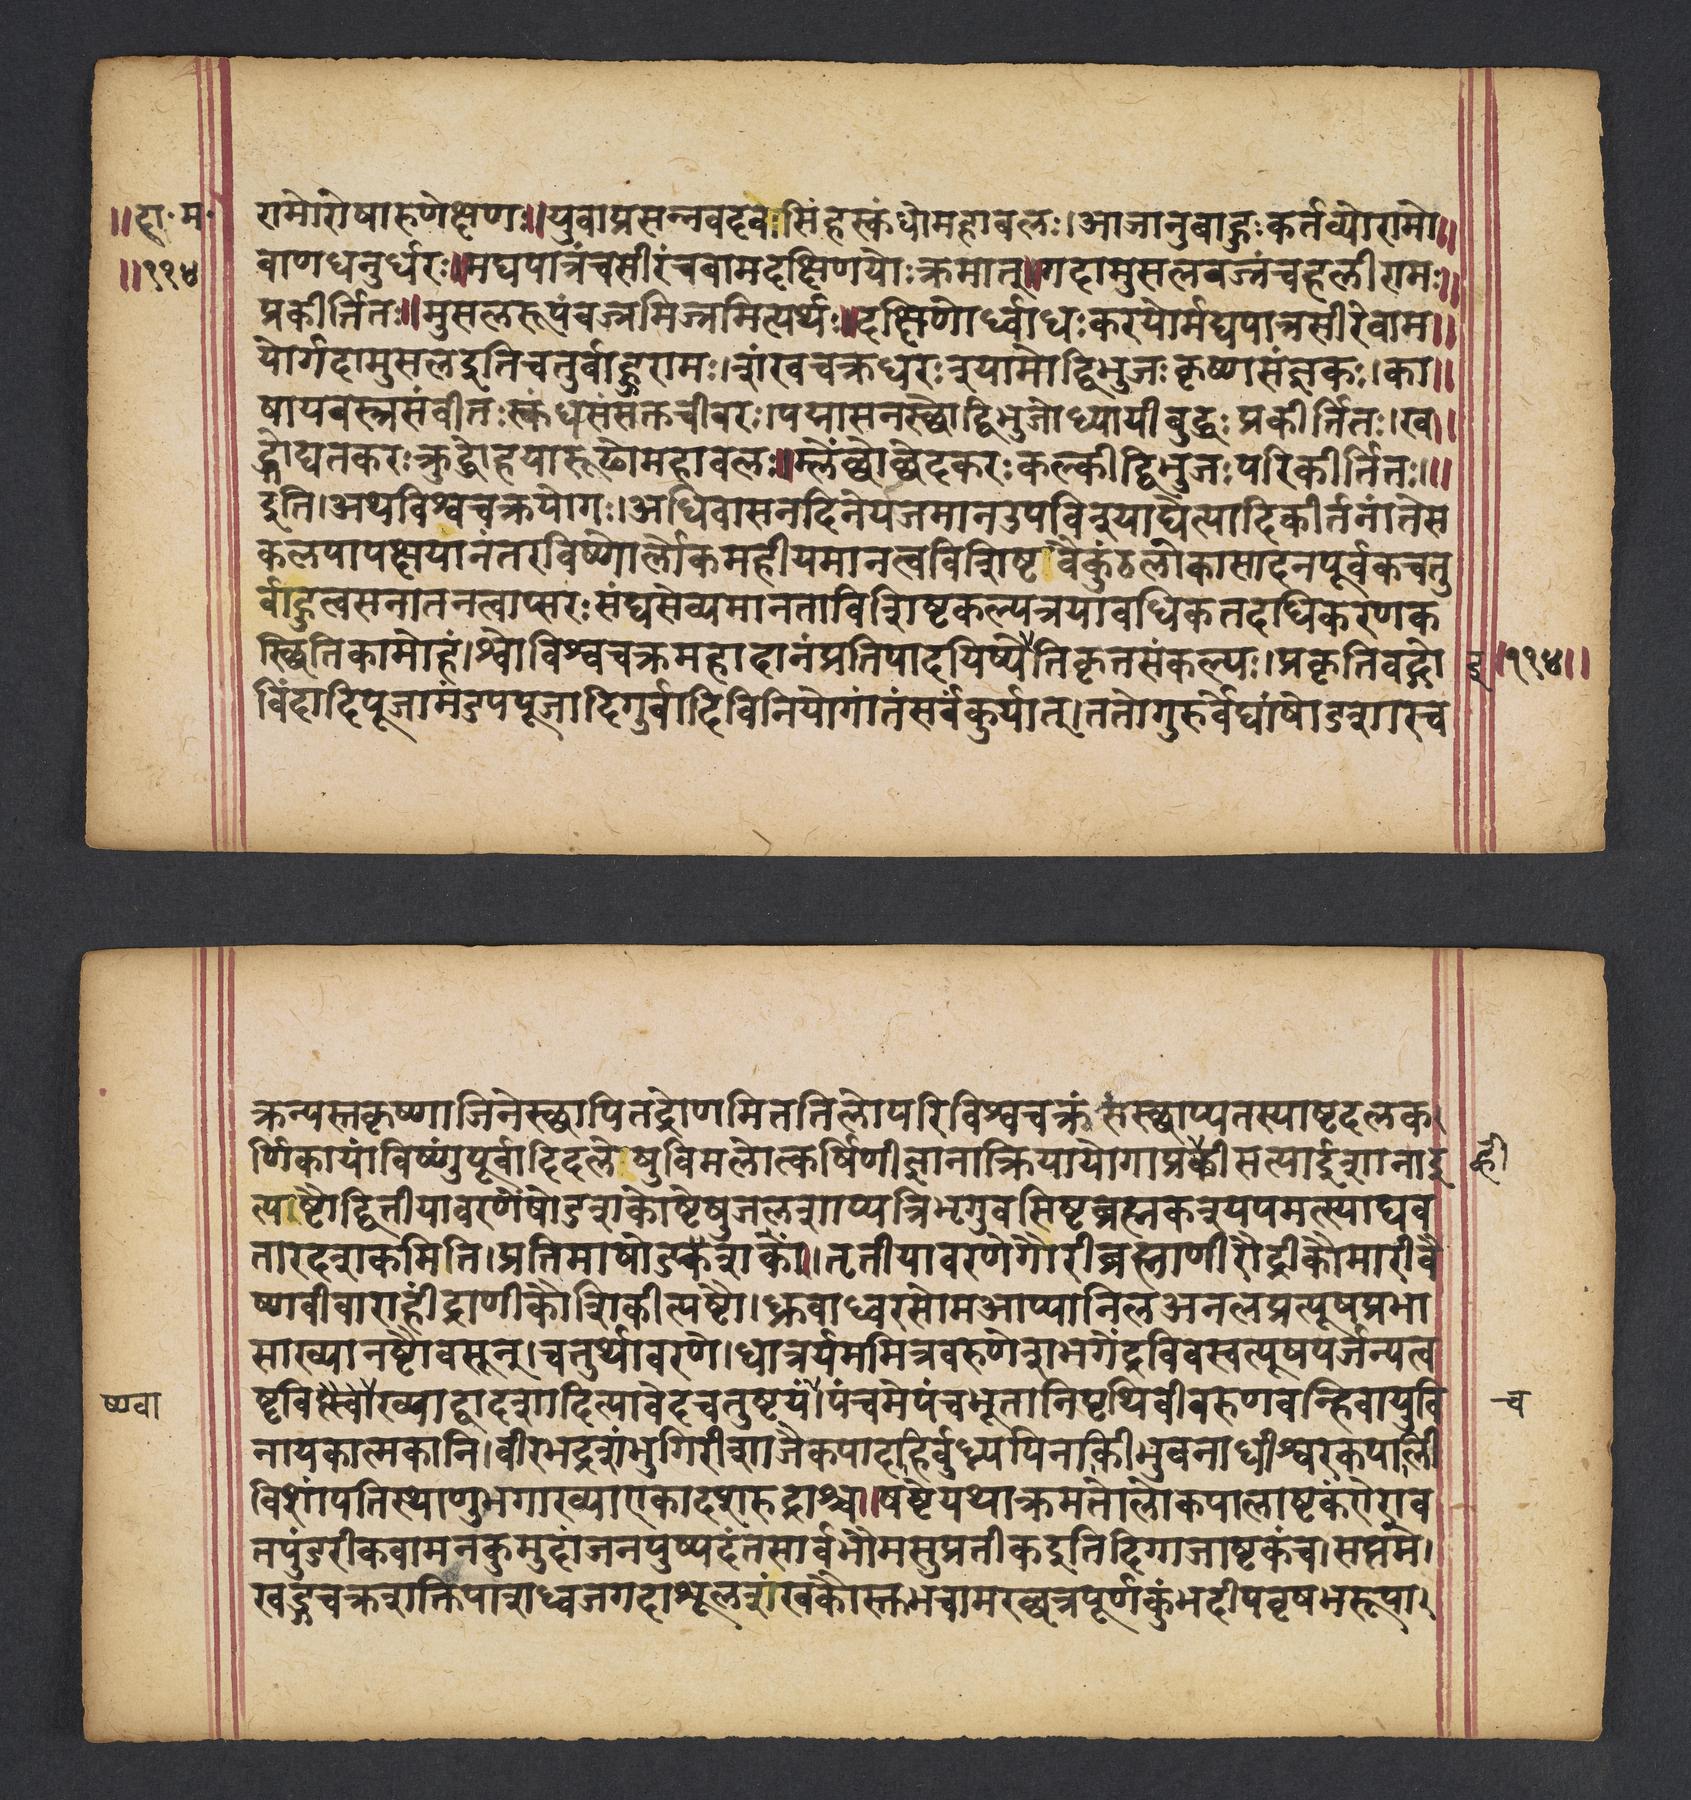 ॥दा॰म॰
॥११४
रामोरोषारुणेक्षणः॥युवाप्रसन्नवदनःसिंहस्कंधोमहाबलः।आजानुबाहुःकर्तव्योरामो॥
बाणधनुर्धरः॥मद्यपात्रंचसीरंचवामदक्षिणयोःक्रमात्॥गदामुसलवज्रंचहलीरामः॥
प्रकीर्तितः॥मुसलरूपंवज्रमिज्रमित्यर्थः॥दक्षिणोर्ध्वाधःकरयोर्मद्यपात्रसीरेवाम॥
योर्गदामुसलइतिचतुर्बाहुरामः।शंखचक्रधरःश्यामोद्विभुजःकृष्णसंज्ञकः।का॥
षायवस्त्रसंवीतःस्कंधसंसक्तचीवरः।पद्मासनस्थोद्विभुजोध्यायीबुद्धःप्रकीर्तितः।ख॥
ड्गोद्यतकरःक्रुद्धोहयारूढोमहाबलः॥म्लेंछोछेदकरःकल्कीद्विभुजःपरिकीर्तितः॥
इति।अथविश्वचक्रयोगः।अधिवासनदिनेयजमानउपविश्याद्येत्यादिकीर्तनांतेस
कलपापक्षयानंतरविष्णोर्लोकमहीयमानत्वविशिष्टवैकुंठलोकासादनपूर्वकचतु
र्बाहुत्वसनातनत्वाप्सरःसंघसेव्यमानताविशिष्टकल्पत्रयावधिकतदधिकरणक
स्थितिकामोहं।श्वोविश्वचक्रमहादानंप्रतिपादयिष्येतिकृतसंकल्पः।प्रकृतिवद्गो
इ
॥११४॥
विंदादिपूजामंडपपूजादिगुर्वादिविनियोगांतंसर्वंकुर्यात्।ततोगुरुर्वेद्यांषोडशारच
क्रन्यस्तकृष्णाजिनेस्थापितद्रोणमिततिलोपरिविश्वचक्रंसंस्थाप्यतस्याष्टदलक
र्णिकायांविष्णुंपूर्वादिदलेषुविमलोत्कर्षिणीज्ञानाक्रियायोगाप्रकीसत्यार्इशानाइ
ह्वी
त्यष्टौद्वितीयावरणेषोडशकोष्टेषुजलशाप्यत्रिभृगुवसिष्टब्रह्मकश्यपमत्स्याद्यव
तारदशकमिति।प्रतिमाषोडकशकें॥तृतीयावरणेगौरीब्रह्माणीरौद्रीकौमारीवै
ष्णवीवाराहींद्राणीकौशिकीत्यष्टौ।ध्रुवाध्वरसोमआप्यानिलअनलप्रत्यूषप्रभा
साख्यानष्टौवसून्।चतुर्थावरणे।धात्रर्यममित्रवरुणेशभगेंद्रविवस्वत्पूषपर्जन्यत्व
ष्टृविस्वौख्याद्वादशादित्यावेदचतुष्टयं।पंचमेपंचभूतानिपृथिवीवरुणवन्हिवायुवि
ष्णवा
च
नायकात्मकानि।वीरभद्रशंभुगिरीशाजैकपादाहिर्बुध्न्यपिनाकीभुवनाधीश्वरकपाली
विशांपतिस्थाणुभगाख्याएकादशरुद्राश्च॥षष्टेयथाक्रमतोलोकपालाष्टकंऐराव
तपुंडरीकवामनकुमुदांजनपुष्पदंतसार्वभौमसुप्रतीकइतिदिगाजाष्टकंच।सप्तमे।
खड्गचक्रशक्तिपाशध्वजगदाशूलशंखकौस्तभचामरछत्रपूर्णकुंभदीपवृषभरूपा